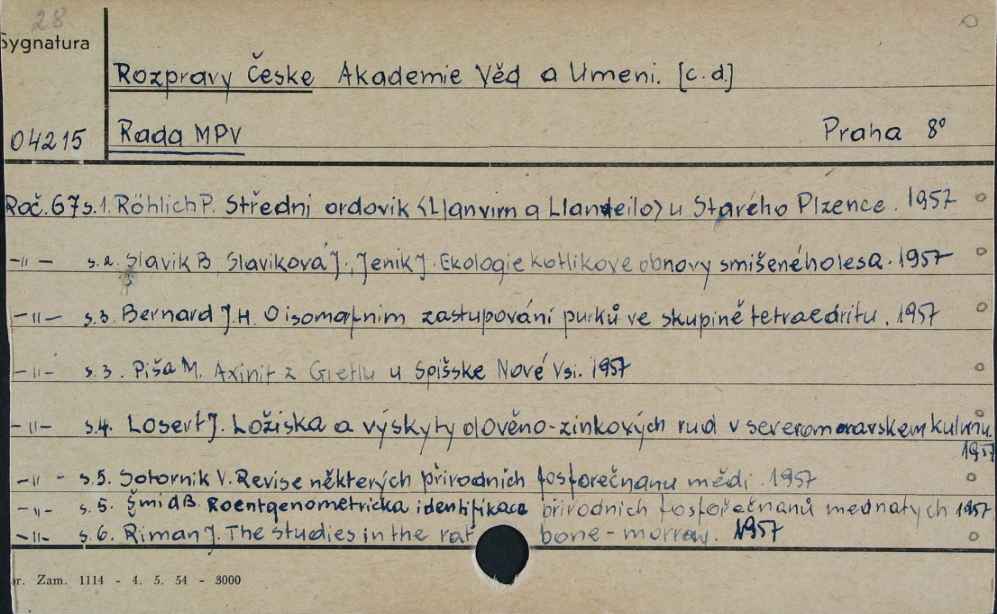 28
Sygnatura
Rozpravy Česke Akademie Věd a Umeni. [c.d.]
04215 Rada MPV Praha 8°
Roč. 67 s.1. Röhlich P. Střední ordovik <Llanvirn a Llandeilo> u Starého Plzence. 1957
-"- s.2. Slavik B. Slaviková J. Jenik J. Ekologie kotlikove obnovy smíšeného lesa. 1957
-"- s.3. Bernard J.H. O isomorfnim zastupování purků ve skupině tetraedritu. 1957
-"- s.3. Píša M. Axinit z Gretlu u Spišske Nové Vsi. 1957
-"- s.4. Losert J. Ložiska a výskyty olověno-zinkových rud v severomoravskem kulmu. 1957
-"- s.5. Sotornik V. Revise některých přirodnich fosforečnanu mědi. 1957
-"- s.5. Šmid B. Roentgenometricka identifikace přirodnich fosforečnanů mednatych 1957
-"- s.6. Riman J. The studies in the rat bone-morray. 1957
r. Zam. 1114 - 4. 5. 54 - 3000